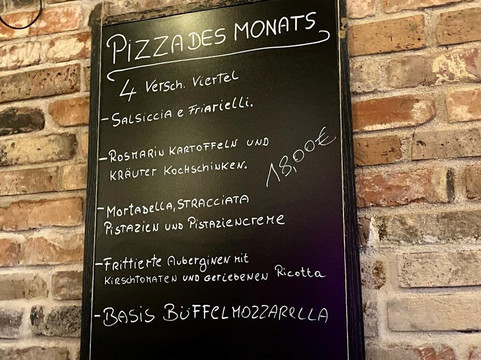 PIZZA DES MONATS
4 Versch. Viertel
- SALSICCIA E FRIARIELLI.
- ROSMARIN KARTOFFELN UND
KRÄUTER KOCHSCHINKEN.
18,00€
- MORTADELLA, STRACCIATA
PISTAZIEN UND PISTAZIENCREME
- FRITTIERTE AUBERGINEN MIT
KIRSCHTOMATEN UND GERIEBENEN RICOTTA
- BASIS BÜFFELMOZZARELLA